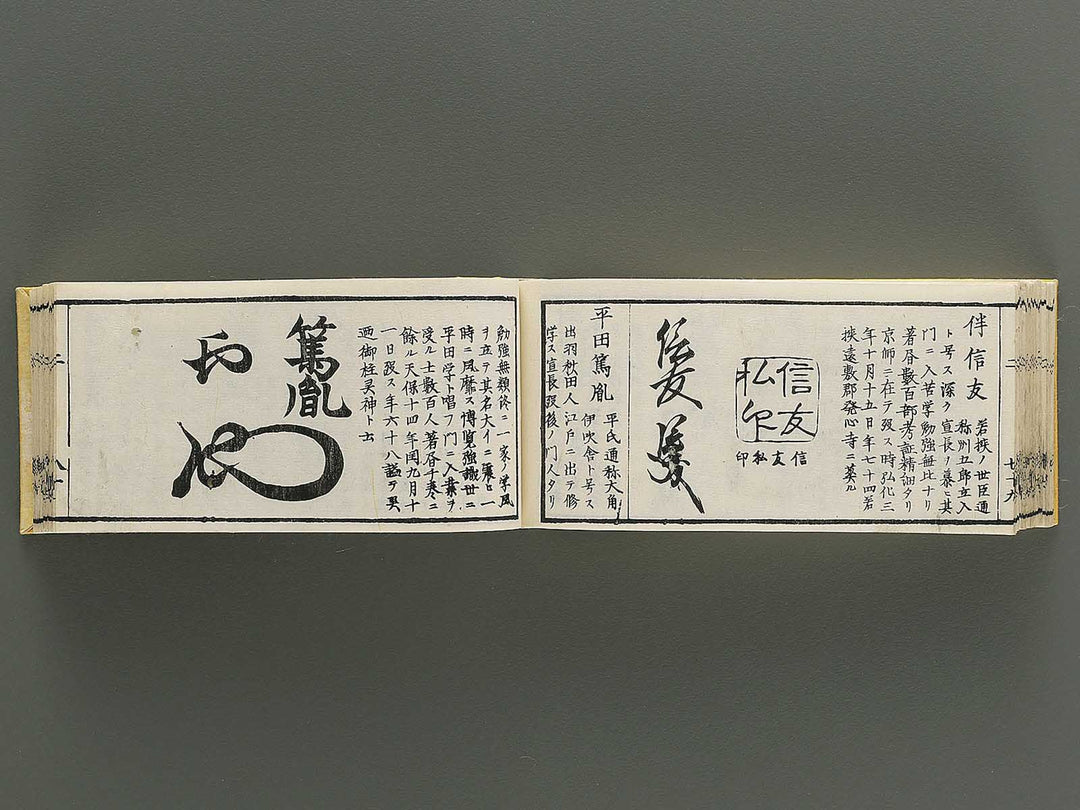 伴信友
若狭ノ世臣通
称州五郎立入
ト号ス深ク宣長ノ慕ヒ其
門ニ入苦学勉強無比ナリ
著昏数百部考証精細タリ
京師ニ在テ歿ス時弘化三
年十月十五日年七十四若
狭遠敷郡発心寺ニ葬ル
信友
私印
信友私印
信友
平田篤胤
平氏通称大角
伊吹舎ト号ス
出羽秋田人江戸ニ出テ修
学ス宣長歿後ノ門人タリ
勉強無類終ニ一家ノ学風
ヲ立テ其名大イニ
時ニ風靡ス博覧強識世ニ
平田学ト唱フ門ニ入業ヲ
受ル士数百人著昏千巻ニ
餘ル天保十四年閏九月十
一日歿ス年六十八謚テ
御柱灵神ト云
篤胤